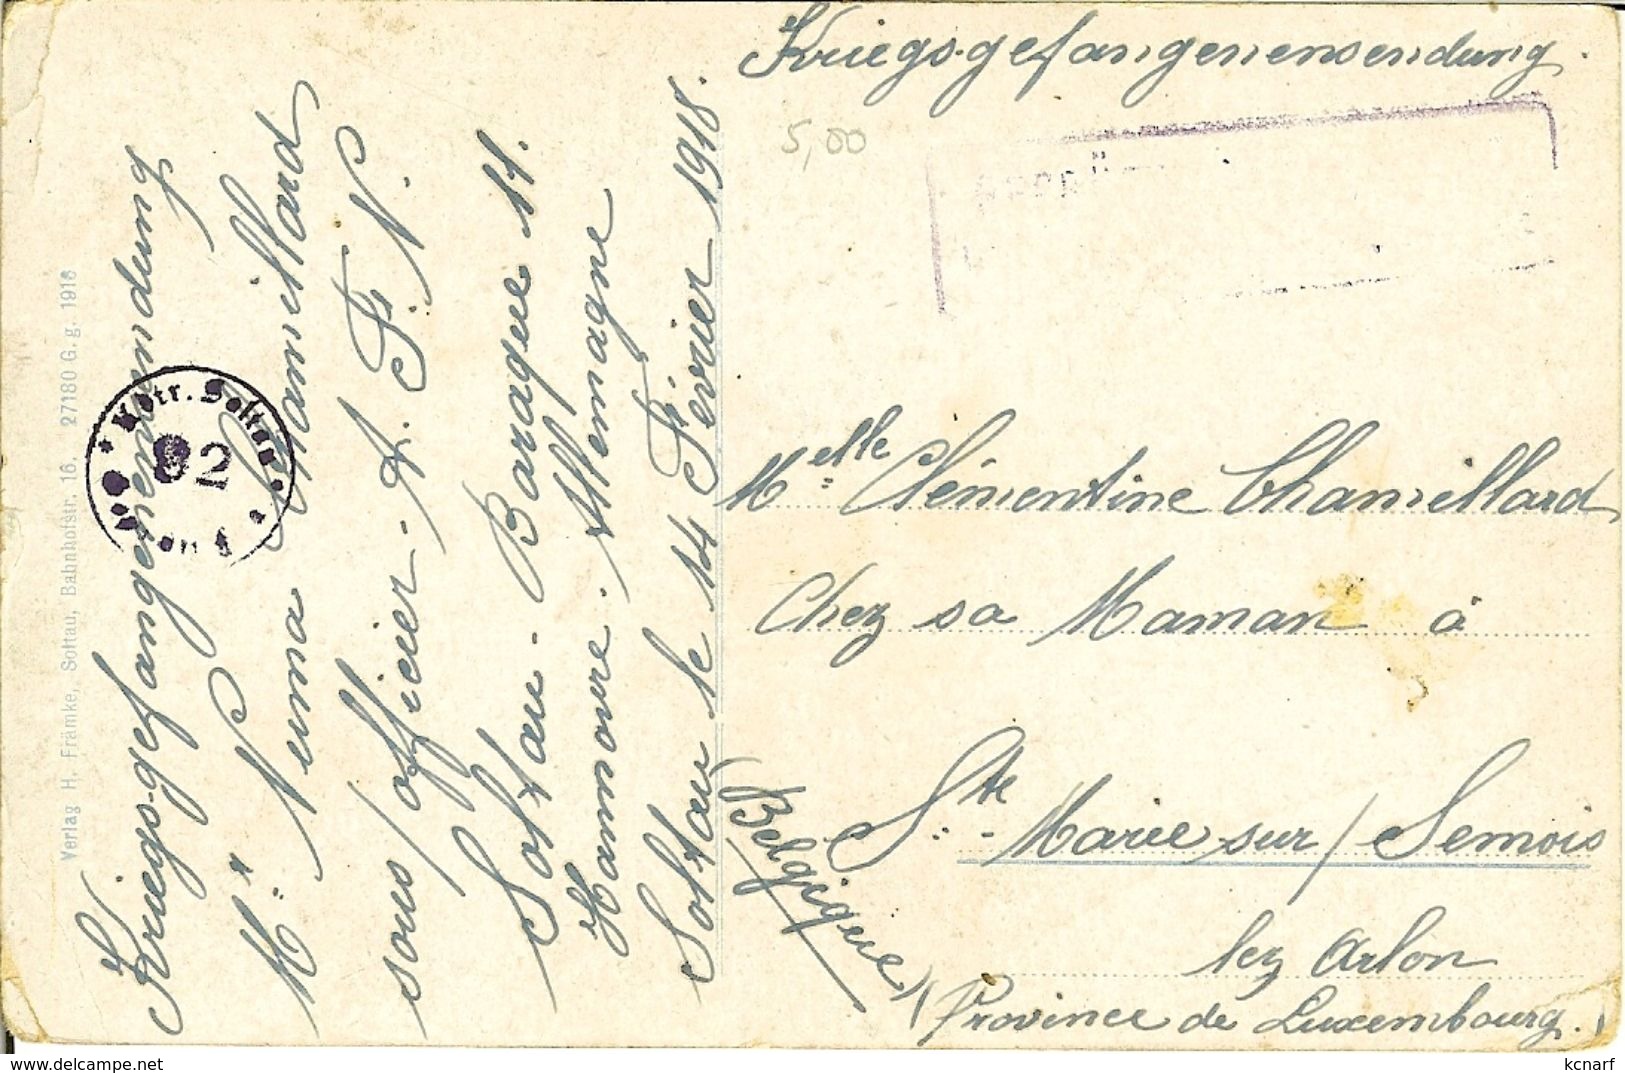 Kriegsgefangenensendung.
5,00
Melle Clémentine Chamellard
Chez sa Maman à
Ste Marie sur/Semois
lez Arlon
(Province de Luxembourg.)
(Belgique)
Kriegsgefangenensendung
Mr Numa Chamellard
sous/officier. A. F. N.
Soltau - Baraque 11.
Hannovre. Allemagne
Soltau le 14 Février 1918.
Verlag H. Främke, Soltau, Bahnhofstr. 16. 27180 G. g. 1916
Soltau
92
www.delcampe.net
kcnarf